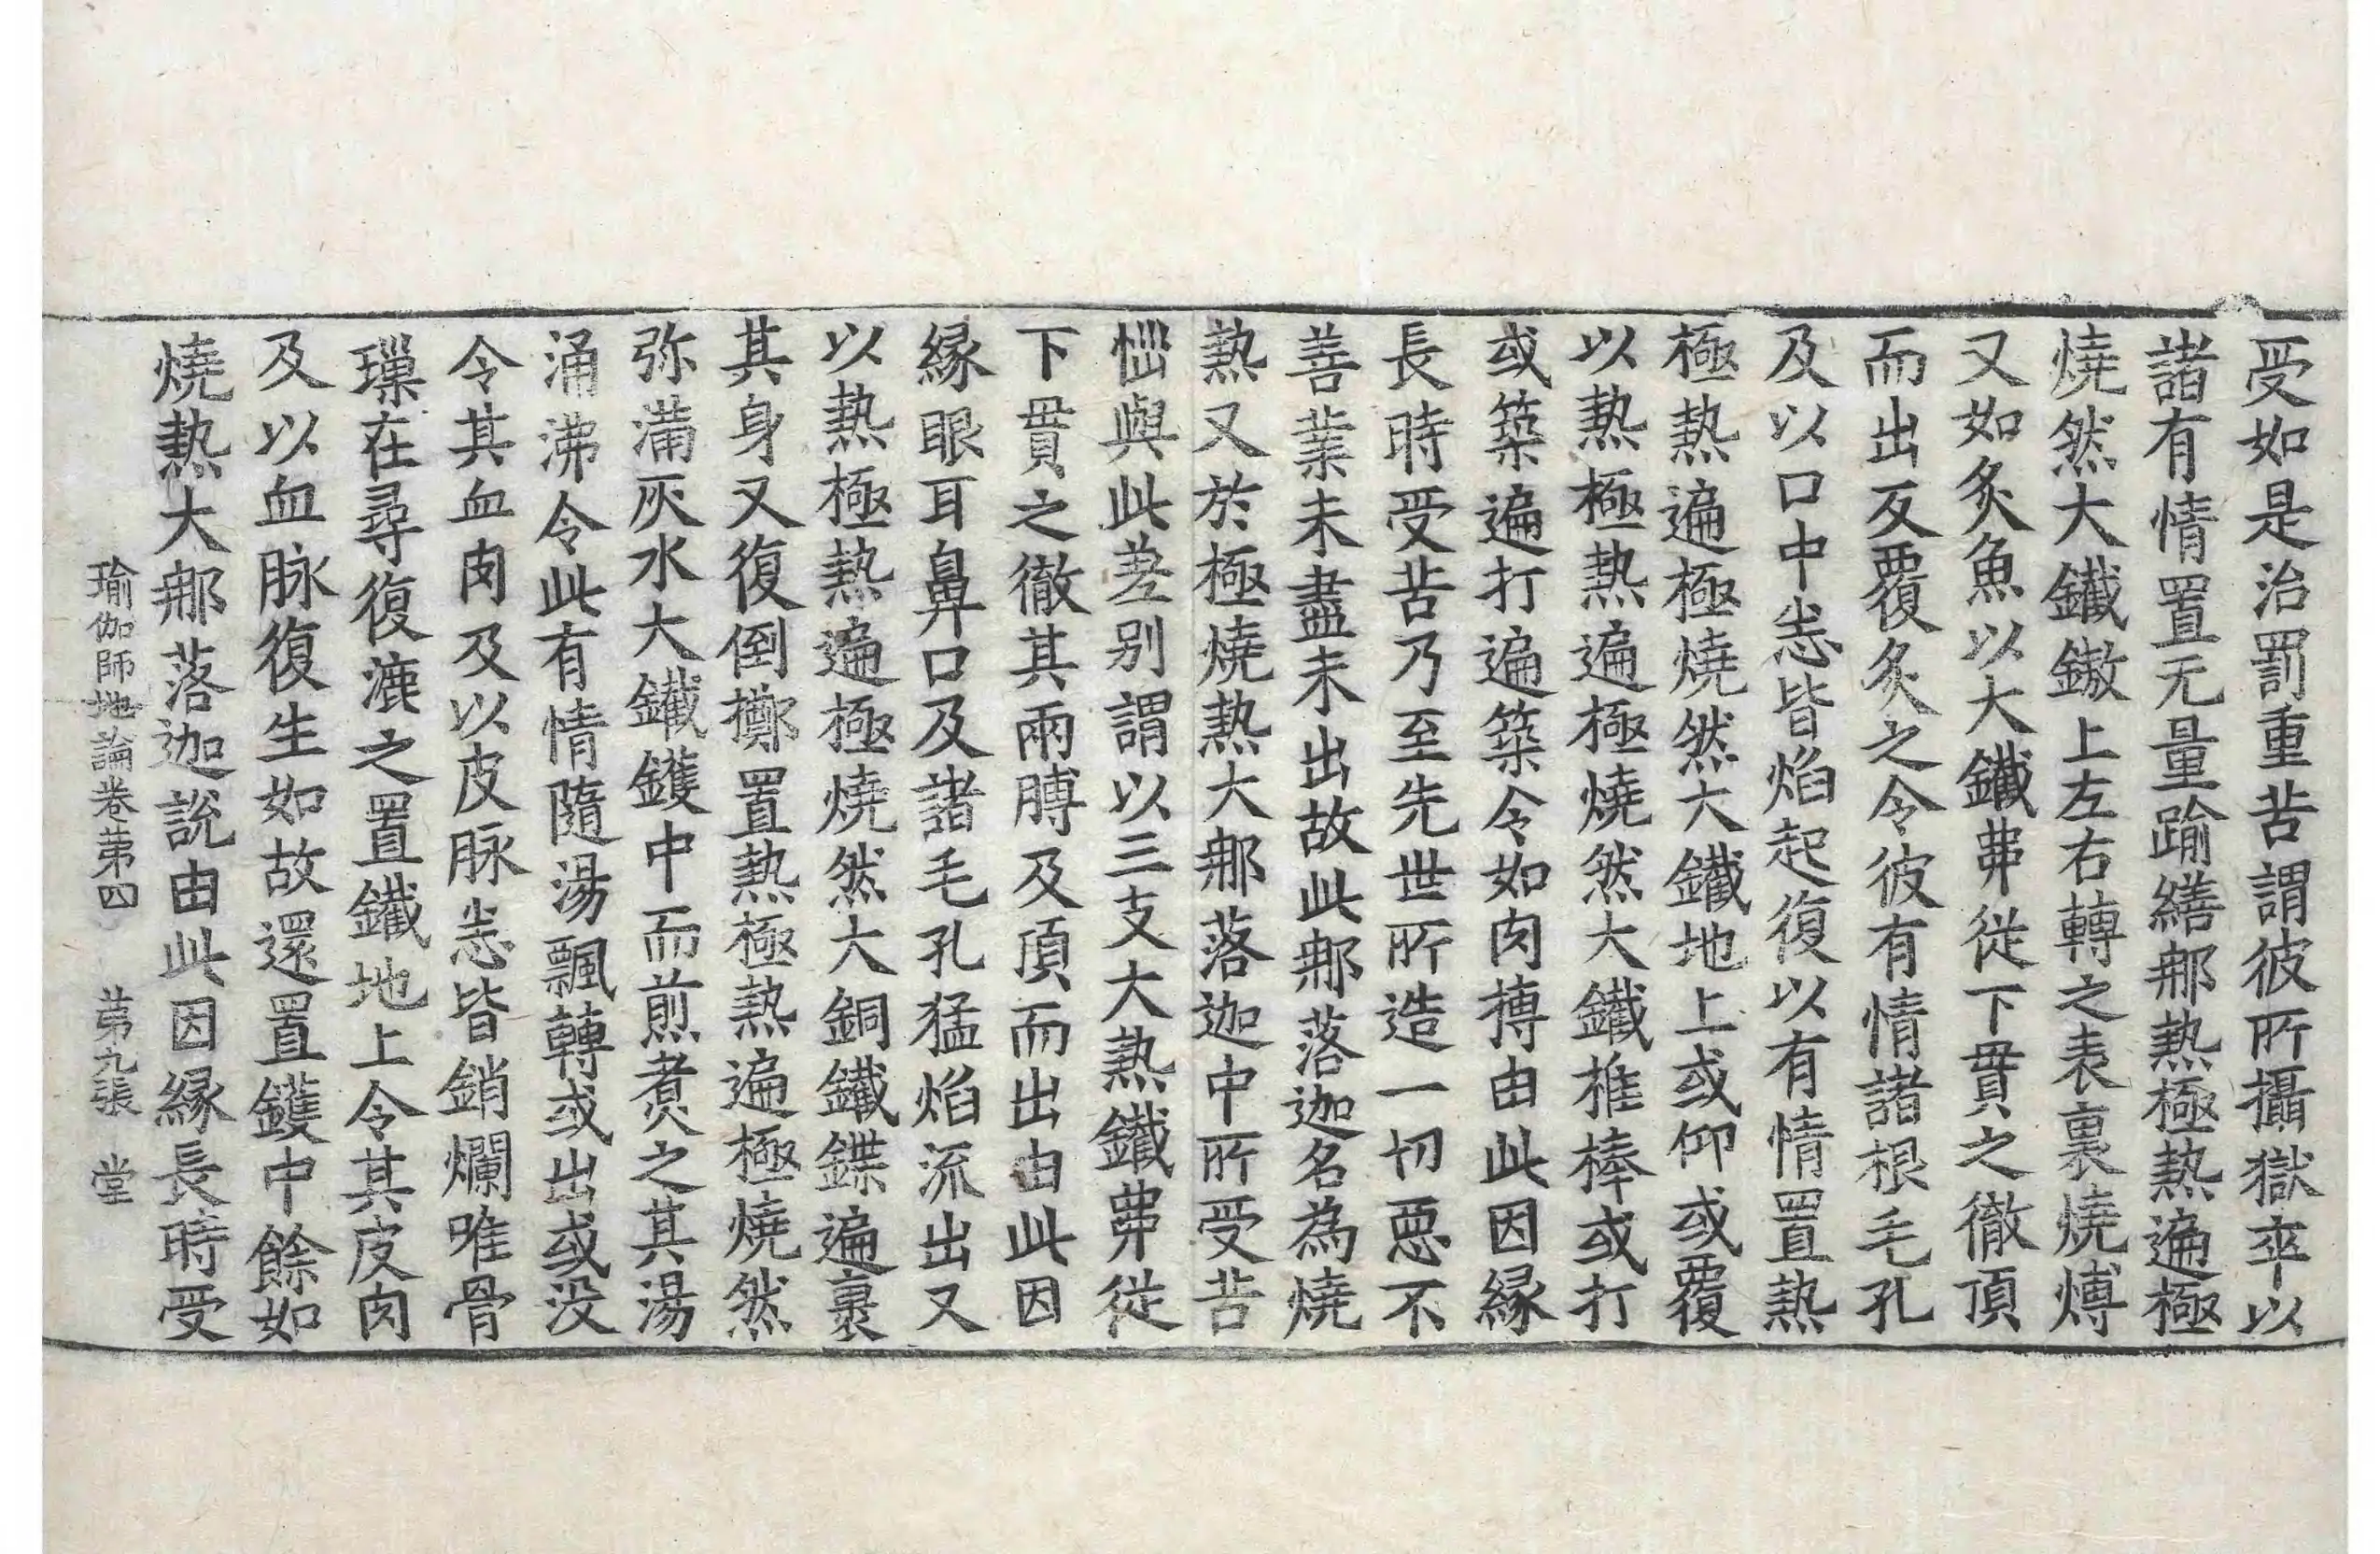 受如是治罰重苦謂彼所攝獄卒以
諸有情置无量踰繕那熱極熱遍極
燒然大鐵鏊上左右轉之表裏燒煿
又如炙魚以大鐵丳從下貫之徹頂
而出反覆炙之令彼有情諸根毛孔
及以口中悉皆焰起復以有情置熱
極熱遍極燒然大鐵地上或仰或覆
以熱極熱遍極燒然大鐵椎棒或打
或築遍打遍築令如肉搏由此因緣
長時受苦乃至先世所造一切惡不
善業未盡未出故此那落迦名為燒
熱又於極燒熱大那落迦中所受苦
惱與此差別謂以三支大熱鐵丳從
下貫之徹其兩膊及頂而出由此因
緣眼耳鼻口及諸毛孔猛焰流出又
以熱極熱遍極燒然大銅鐵鍱遍裹
其身又復倒擲置熱極熱遍極燒然
弥滿灰水大鐵鑊中而煎煮之其湯
涌沸令此有情隨湯飄轉或出或没
令其血肉及以皮脉悉皆銷爛唯骨
璅在尋復漉之置鐵地上令其皮肉
及以血脉復生如故還置鑊中餘如
燒熱大那落迦說由此因緣長時受
瑜伽師地論卷第四 第九張 堂